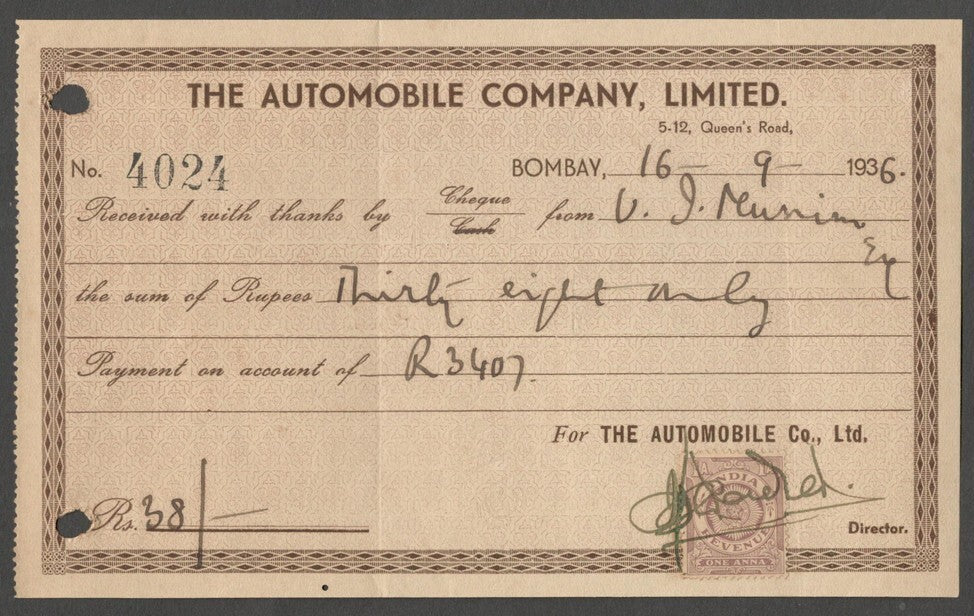 THE AUTOMOBILE COMPANY, LIMITED.
5-12, Queen's Road,
No. 4024
BOMBAY, 16 – 9 – 1936.
Received with thanks by Cheque Cash from V. J.
Esq
the sum of Rupees Thirty eight only
Payment on account of R3407.
For THE AUTOMOBILE Co., Ltd.
INDIA
REVENUE
ONE ANNA
Rs. 38/–
Director.